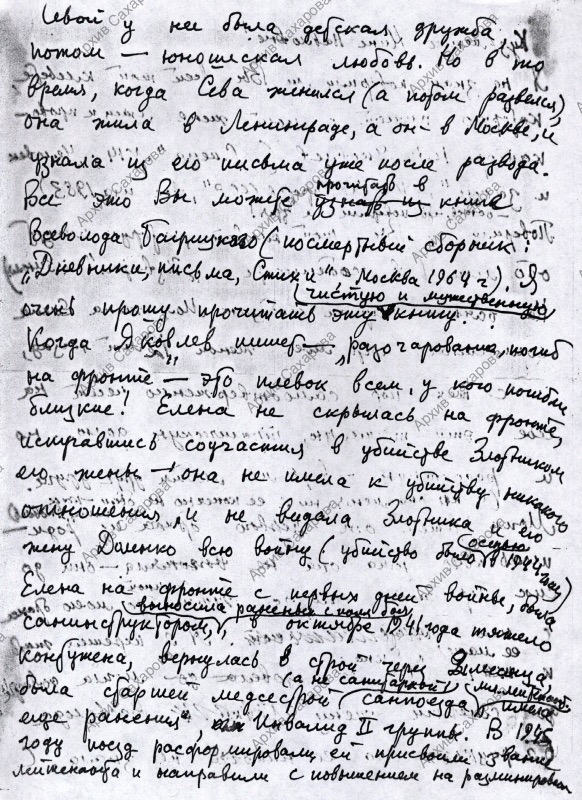 Севой у нее была детская дружба,
потом — юношеская любовь. Но в то
время, когда Сева женился (а потом развелся),
она жила в Ленинграде, а он в Москве, и
узнала из его письма уже после развода.
Все это Вы можете прочитать в книге
Всеволода Багрицкого (посмертный сборник:
„Дневники, письма, стихи" Москва 1964 г). Я
очень прошу прочитать эту чистую и мужественную книгу!
Когда Яковлев пишет — „разочарование, погиб
на фронте" — это плевок всем, у кого погибли
близкие! Елена не скрылась на фронте,
испугавшись соучастия в убийстве Злотником
его жены — она не имела к убийству никакого
отношения, и не видала Злотника и его
жену Доленко всю войну (убийство было осенью 1944 года)
Елена на фронте с первых дней войны, была
санинструктором, выносила раненых с поля боя, в октябре 1941 года тяжело
контужена, вернулась в строй через 2 месяца
была старшей медсестрой (а не санитаркой) санпоезда, имела
еще ранения, Инвалид II группы. В 1945
году поезд расформировали, ей присвоили звание
лейтенанта и направили с повышением на